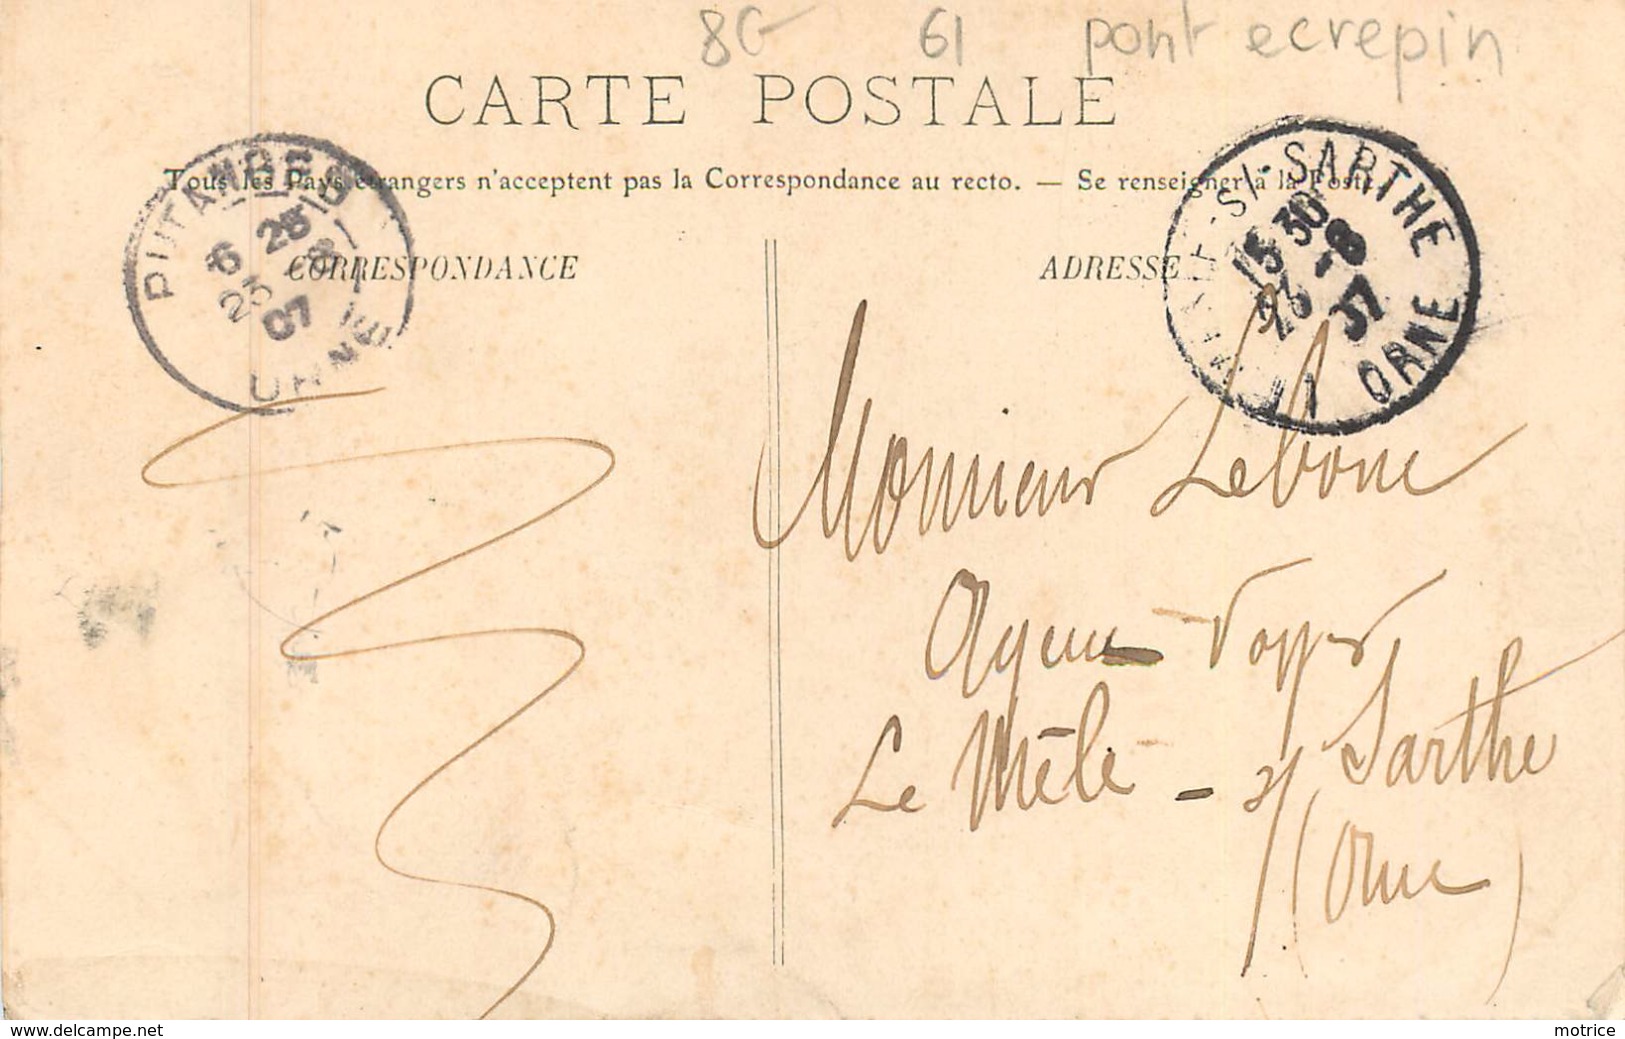 8G 61 pont ecrepin
CARTE POSTALE
Tous les Pays étrangers n'acceptent pas la Correspondance au recto. — Se renseigner à la Poste
PUTANGES
6 25
23 8
07
ORNE
CORRESPONDANCE
ADRESSE
S/-SARTHE
15 30
26 -8
07
ORNE
Monsieur Lebouc
Agent Voyer
Le Mêle - s/ Sarthe
(Orne)
www.delcampe.net
motrice